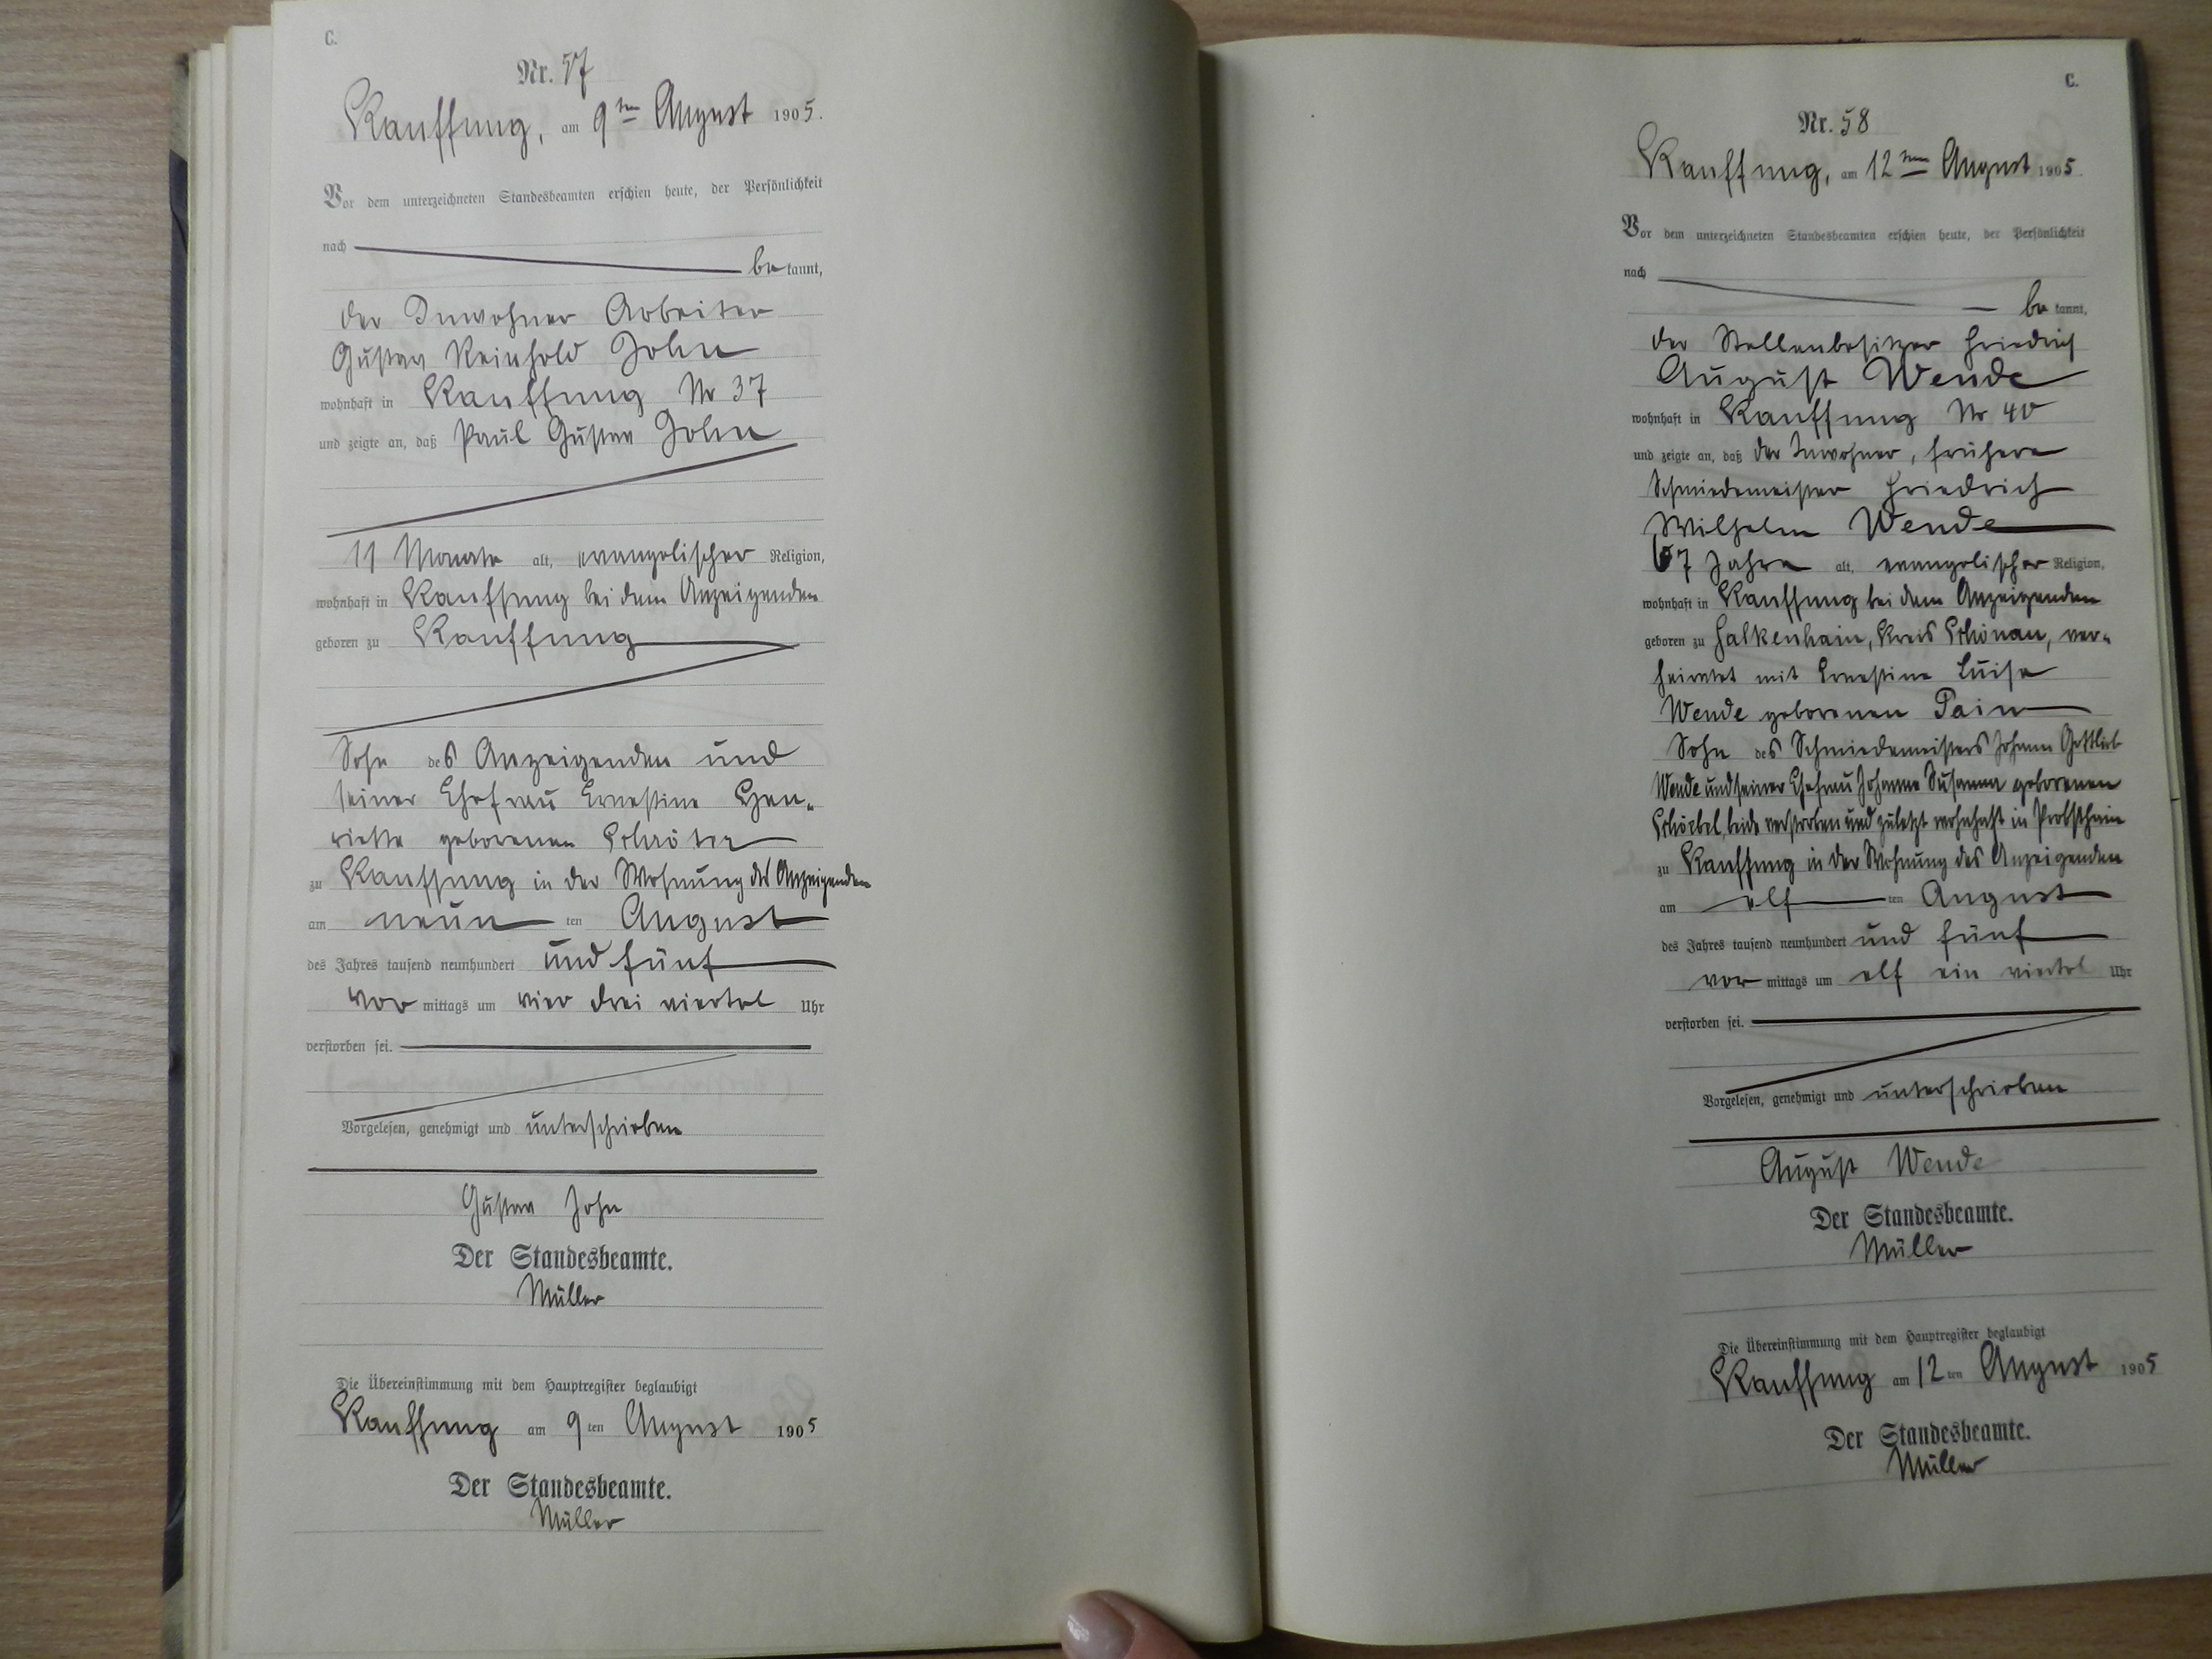 C.
Nr. 57
Kauffung, am 9ten August 1905.
Vor dem unterzeichneten Standesbeamten erschien heute, der Persönlichkeit
nach
be kannt,
der Inwohner Arbeiter
Gustav Reinhold John
wohnhaft in Kauffung Nr 37
und zeigte an, daß Paul Gustav John
11 Monate alt, evangelischer Religion,
wohnhaft in Kauffung bei dem Anzeigenden
geboren zu Kauffung
Sohn des Anzeigenden und
seiner Ehefrau Ernestine Hen-
riette geborenen Schröter
zu Kauffung in der Wohnung des Anzeigenden
am neun ten August
des Jahres tausend neunhundert und fünf
vor mittags um vier drei viertel Uhr
verstorben sei.
Vorgelesen, genehmigt und unterschrieben
Gustav John
Der Standesbeamte.
Müller
Die Übereinstimmung mit dem Hauptregister beglaubigt
Kauffung am 9 ten August 1905
Der Standesbeamte.
Müller
C.
Nr. 58
Kauffung, am 12ten August 1905.
Vor dem unterzeichneten Standesbeamten erschien heute, der Persönlichkeit
nach
be kannt,
der Stellenbesitzer Friedrich
August Wende
wohnhaft in Kauffung Nr 40
und zeigte an, daß der Inwohner, frühere
Schmiedemeister Friedrich
Wilhelm Wende
67 Jahre alt, evangelischer Religion,
wohnhaft in Kauffung bei dem Anzeigenden
geboren zu Falkenhain, Kreis Schönau, ver-
heiratet mit Ernestine Luise
Wende geborenen Pain
Sohn des Schmiedemeisters Johann Gottlieb
Wende und seiner Ehefrau Johanne Susanna geborenen
Schöebel, beide verstorben und zuletzt wohnhaft in Probsthain
zu Kauffung in der Wohnung des Anzeigenden
am elf ten August
des Jahres tausend neunhundert und fünf
vor mittags um elf ein viertel Uhr
verstorben sei.
Vorgelesen, genehmigt und unterschrieben
August Wende
Der Standesbeamte.
Müller
Die Übereinstimmung mit dem Hauptregister beglaubigt
Kauffung am 12 ten August 1905
Der Standesbeamte.
Müller